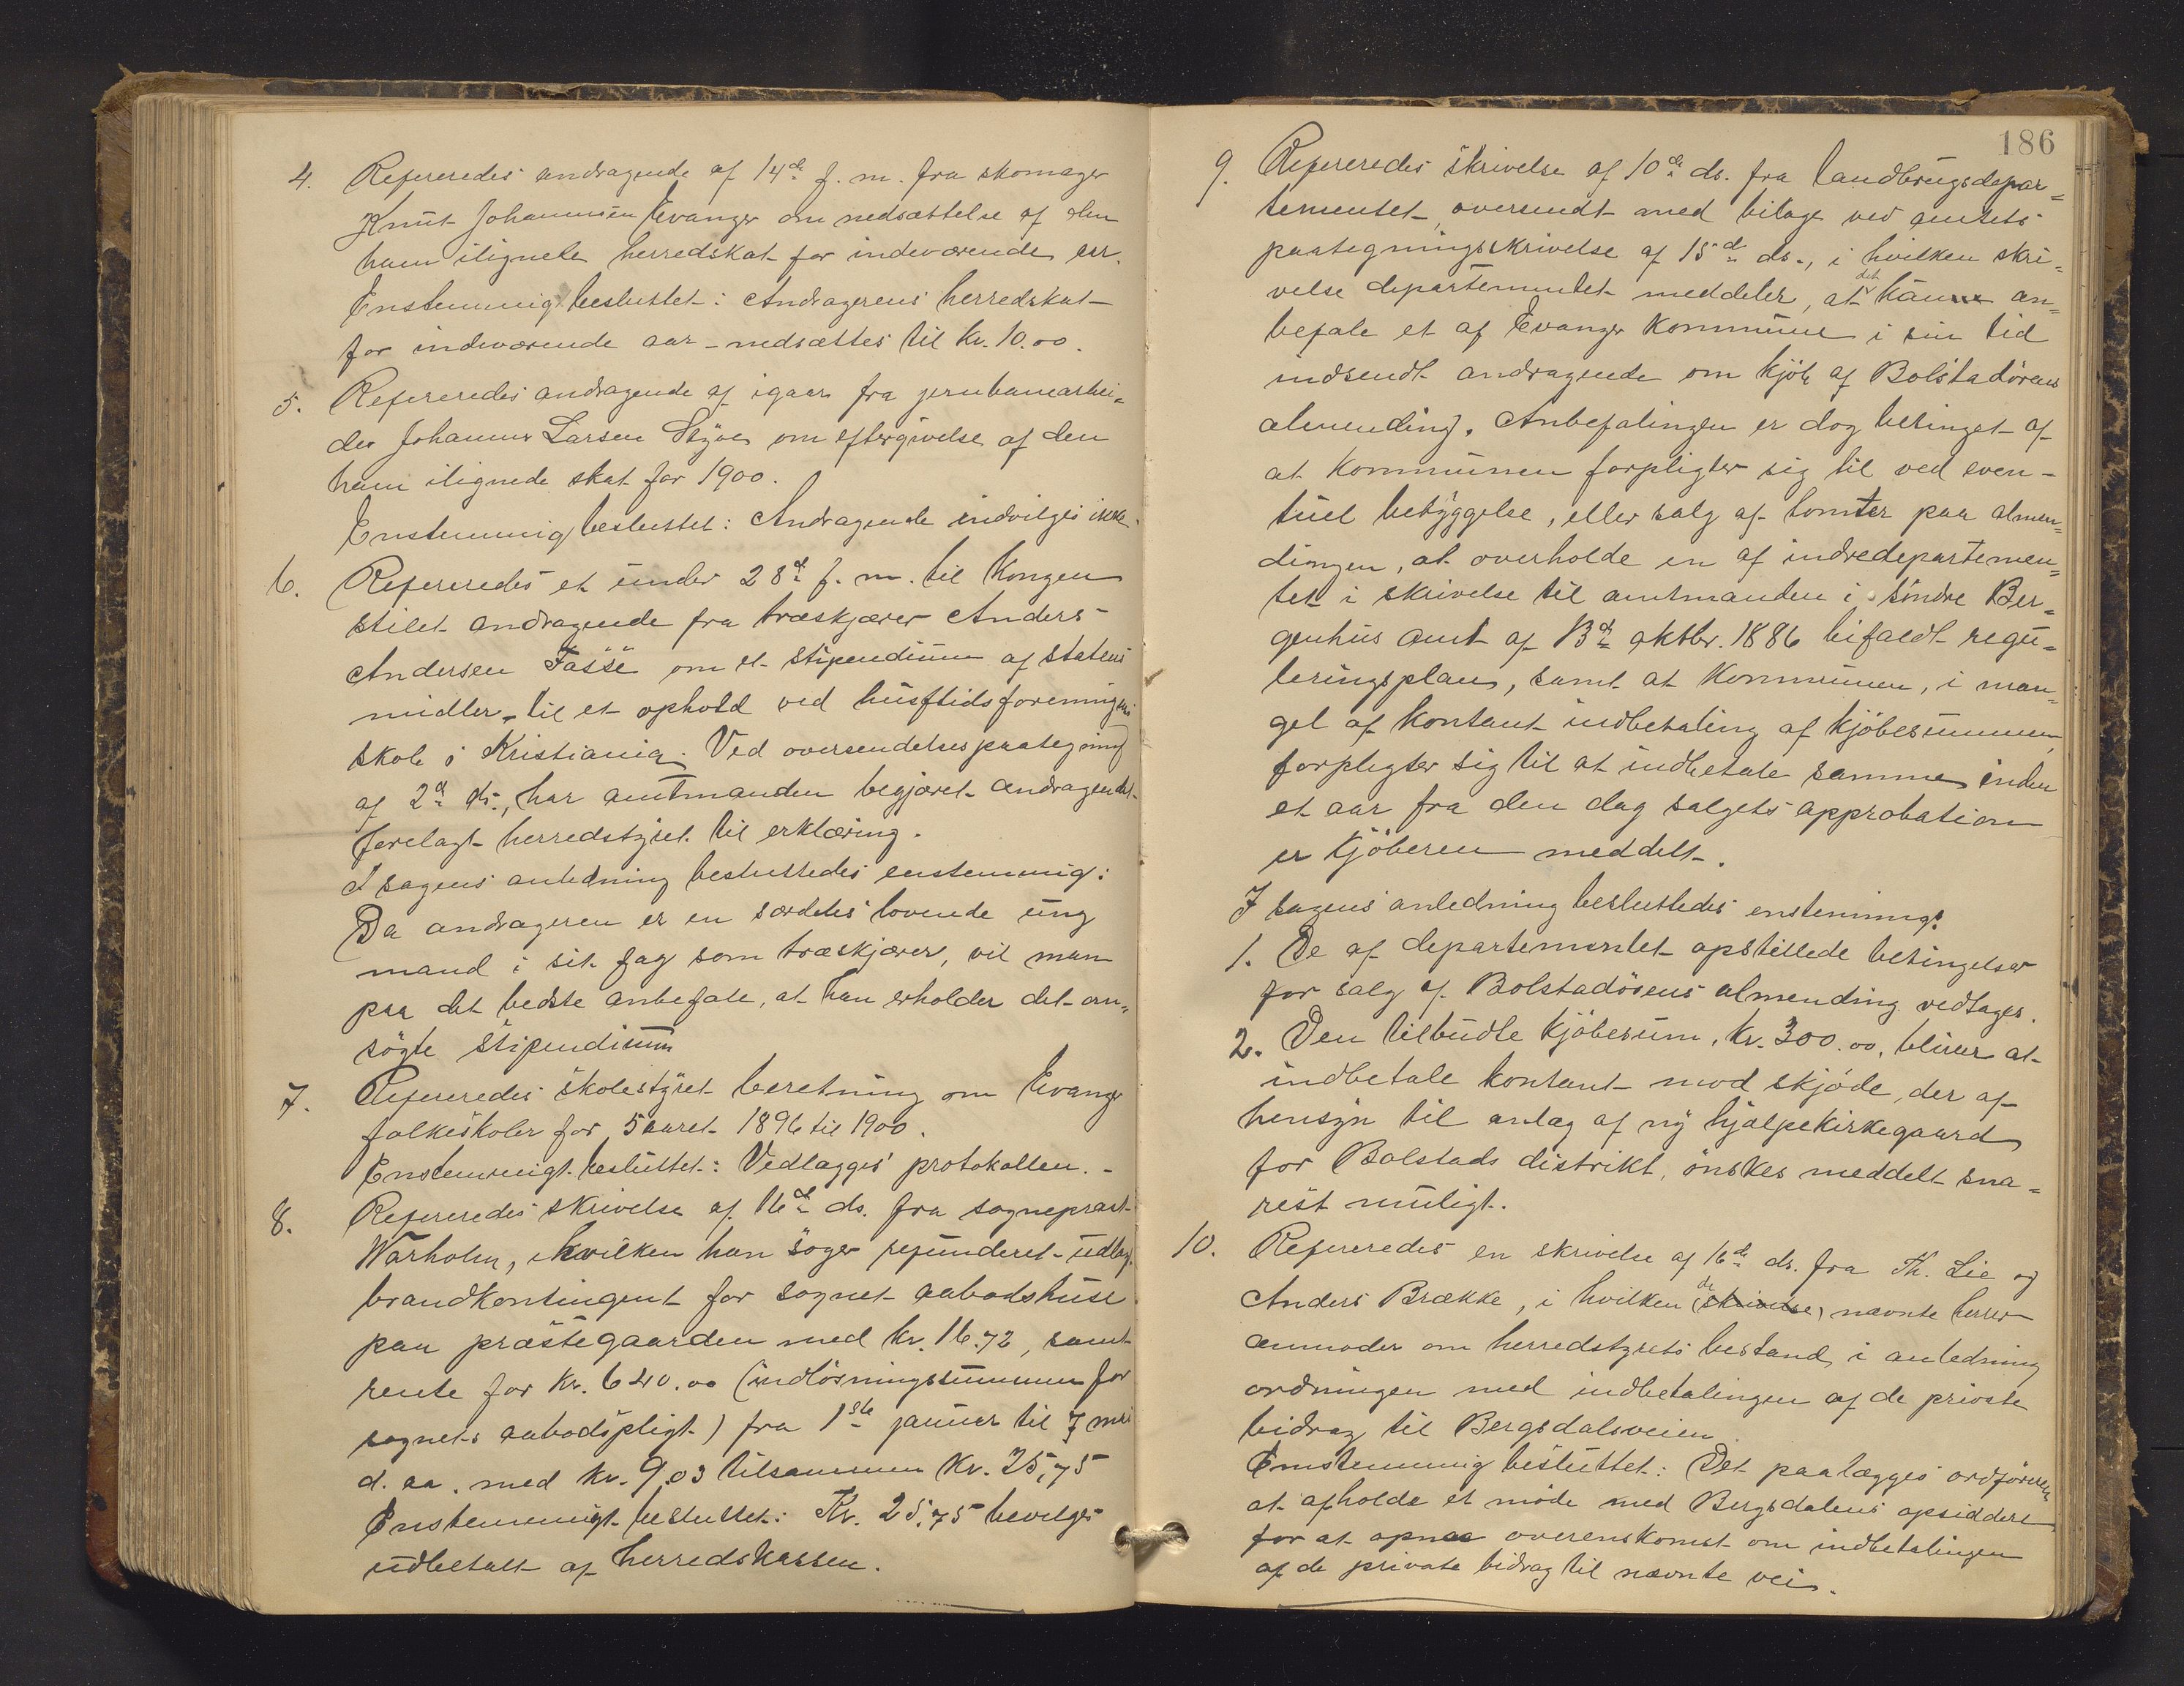 4. Refereredes andragende af 14de f. m. fra skomager
Knut Johannesen Evanger om nedsættelse af den
ham ilignede herredskat for indeværende aar.
Enstemmig besluttet: Andragerens herredskat
for indeværende aar - nedsættes til kr. 10.00.
5. Refereredes andragende af igaar fra jernbanearbei=
der Johannes Larsen om eftergivelse af den
ham ilignede skat for 1900.
Enstemmig besluttet: Andragende indvilges ikke.
6. Refereredes et under 28de f. m. til Kongen
stilet andragende fra træskjærer Anders
Andersen Fasse om et stipendium af statens
midler til et ophold ved husflidsforeningens
skole i Kristiania. Ved oversendelsespaategning
af 2de ds., har amtmanden begjæret andragendet
forelagt herredstyret til erklæring.
I sagens anledning besluttedes enstemmig:
Da andrageren er en særdeles lovende ung
mand i sit fag som træskjærer, vil man
paa det bedste anbefale, at han erholder det an=
søgte stipendium
7. Refereredes skolestyret beretning om Evanger
folkeskoler for 5 aaret 1896 til 1900.
Enstemmigt besluttet: Vedlægges protokollen. -
8. Refereredes skrivelse af 16de ds. fra sogneprest
Warholm, i hvilken han søger refunderet udlag.
brandkontingent for sognet aabodshuse
paa præstegaarden med kr. 16.72, samt
rente for kr. 640.00 (indløsningssummen for
sognets aabodspligt) fra 1ste januar til 7 mai
d. aa. med kr. 9.03 tilsammen kr. 25,75
Enstemmigt besluttet: Kr. 25,75 bevilges
udbetalt af herredskassen.
186
9. Refereredes skrivelse af 10de ds. fra landbrugsdepar=
tementet, oversendt med bilage ved amtets
paategningsskrivelse af 15de ds., i hvilken skri=
velse departementet meddeler, at det kan an=
befale et af Evanger kommune i sin tid
indsendt andragende om kjøb af Bolstadørens
almending. Anbefalingen er dog betinget af
at kommunen forpligter sig til ved even-
tuel bebyggelse, eller salg af tomter paa almen=
dingen, at overholde en af indredepartemen=
tet i skrivelse til amtmanden i søndre Ber=
genhus amt af 13de oktbr. 1886 bifaldt regu=
leringsplan, samt at kommunen, i man=
gel af kontant indbetaling af kjøbesummen,
forpligter sig til at indbetale samme inden
et aar fra den dag salgets approbation
er kjøberen meddelt.
I sagens anledning besluttedes enstemmig:
1. De af departementet opstillede betingelser
for salg af Bolstadørens almending vedtages.
2. Den tilbudte kjøbesum, kr. 300.00, bliver at
indbetale kontant mod skjøde, der af
hensyn til anlæg af ny hjælpekirkegaard
for Bolstads distrikt, ønskes meddelt sna=
rest muligt.
10. Refereredes en skrivelse af 16de ds. fra Th. Lie og
Anders Brække, i hvilken (skrivelse) de nævnte herrer
anmoder om herredstyrets bestand i anledning
ordningen med indbetalingen af de private
bidrag til Bergsdalsveien.
Enstemmig besluttet: Det paalægges ordføreren
at afholde et møde med Bergsdalens opsiddere
for at opnaa overenskomst om indbetalingen
af de private bidrag til nævnte vei.